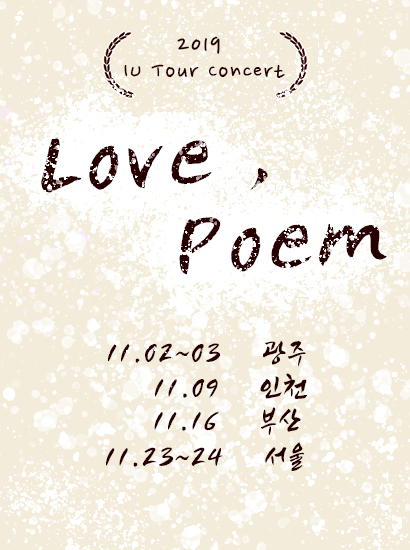 2019
IU Tour concert
Love ,
Poem
11.02~03 광주
11.09 인천
11.16 부산
11.23~24 서울